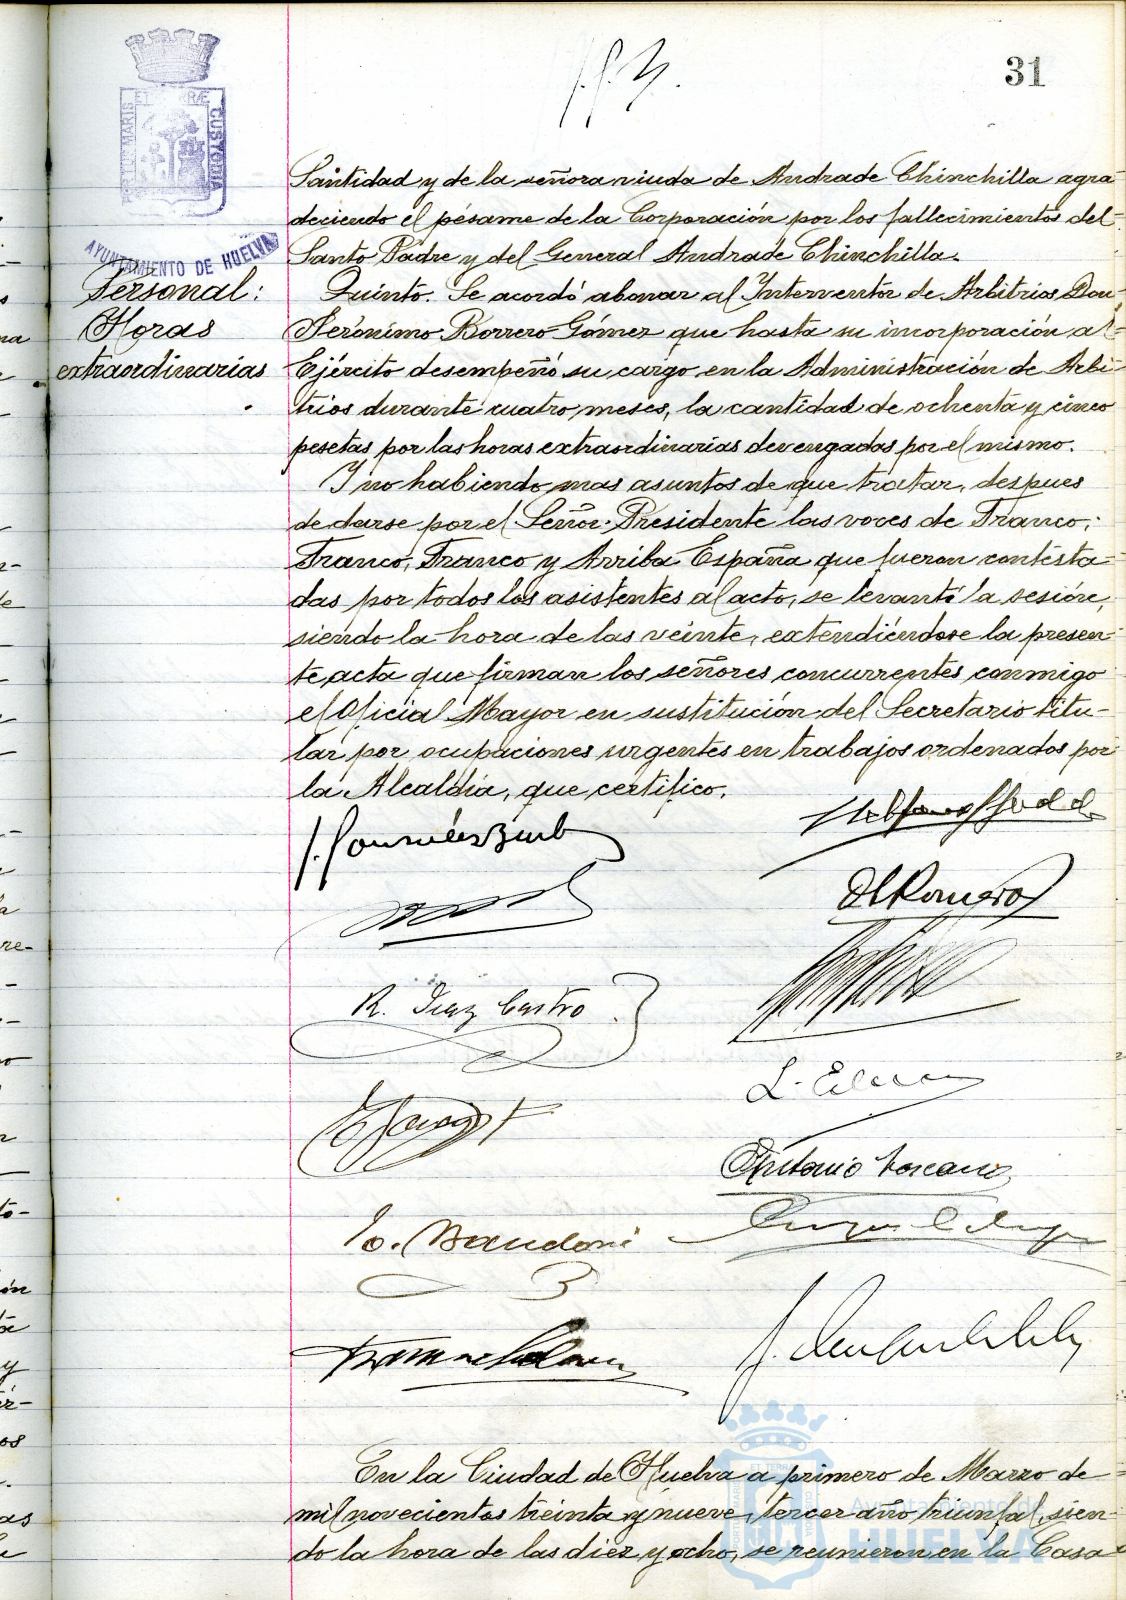 31
PORTUS MARIS ET TERRAE CUSTODIA
AYUNTAMIENTO DE HUELVA
Santidad y de la señora viuda de Andrade Chinchilla agra-
deciendo el pésame de la Corporación por los fallecimientos del
Santo Padre y del General Andrade Chinchilla.
Personal:
Horas
extraordinarias
Quinto. Se acordó abonar al Interventor de Arbitrios Don
Jerónimo Borrero Gómez que hasta su incorporación al
Ejército desempeñó su cargo en la Administración de Arbi-
trios durante cuatro meses, la cantidad de ochenta y cinco
pesetas por las horas extraordinarias devengadas por el mismo.
Y no habiendo mas asuntos de que tratar, despues
de darse por el Señor Presidente las voces de Franco,
Franco, Franco y Arriba España que fueron contesta-
das por todos los asistentes al acto, se levantó la sesión,
siendo la hora de las veinte, extendiéndose la presen-
te acta que firman los señores concurrentes conmigo
el Oficial Mayor en sustitución del Secretario titu-
lar por ocupaciones urgentes en trabajos ordenados por
la Alcaldía, que certifico.
R. Diaz Castro
Antonio Toscano
En la Ciudad de Huelva a primero de Marzo de
mil novecientos treinta y nueve, tercer año triunfal, sien-
do la hora de las diez y ocho, se reunieron en la Casa
Ayuntamiento de
HUELVA